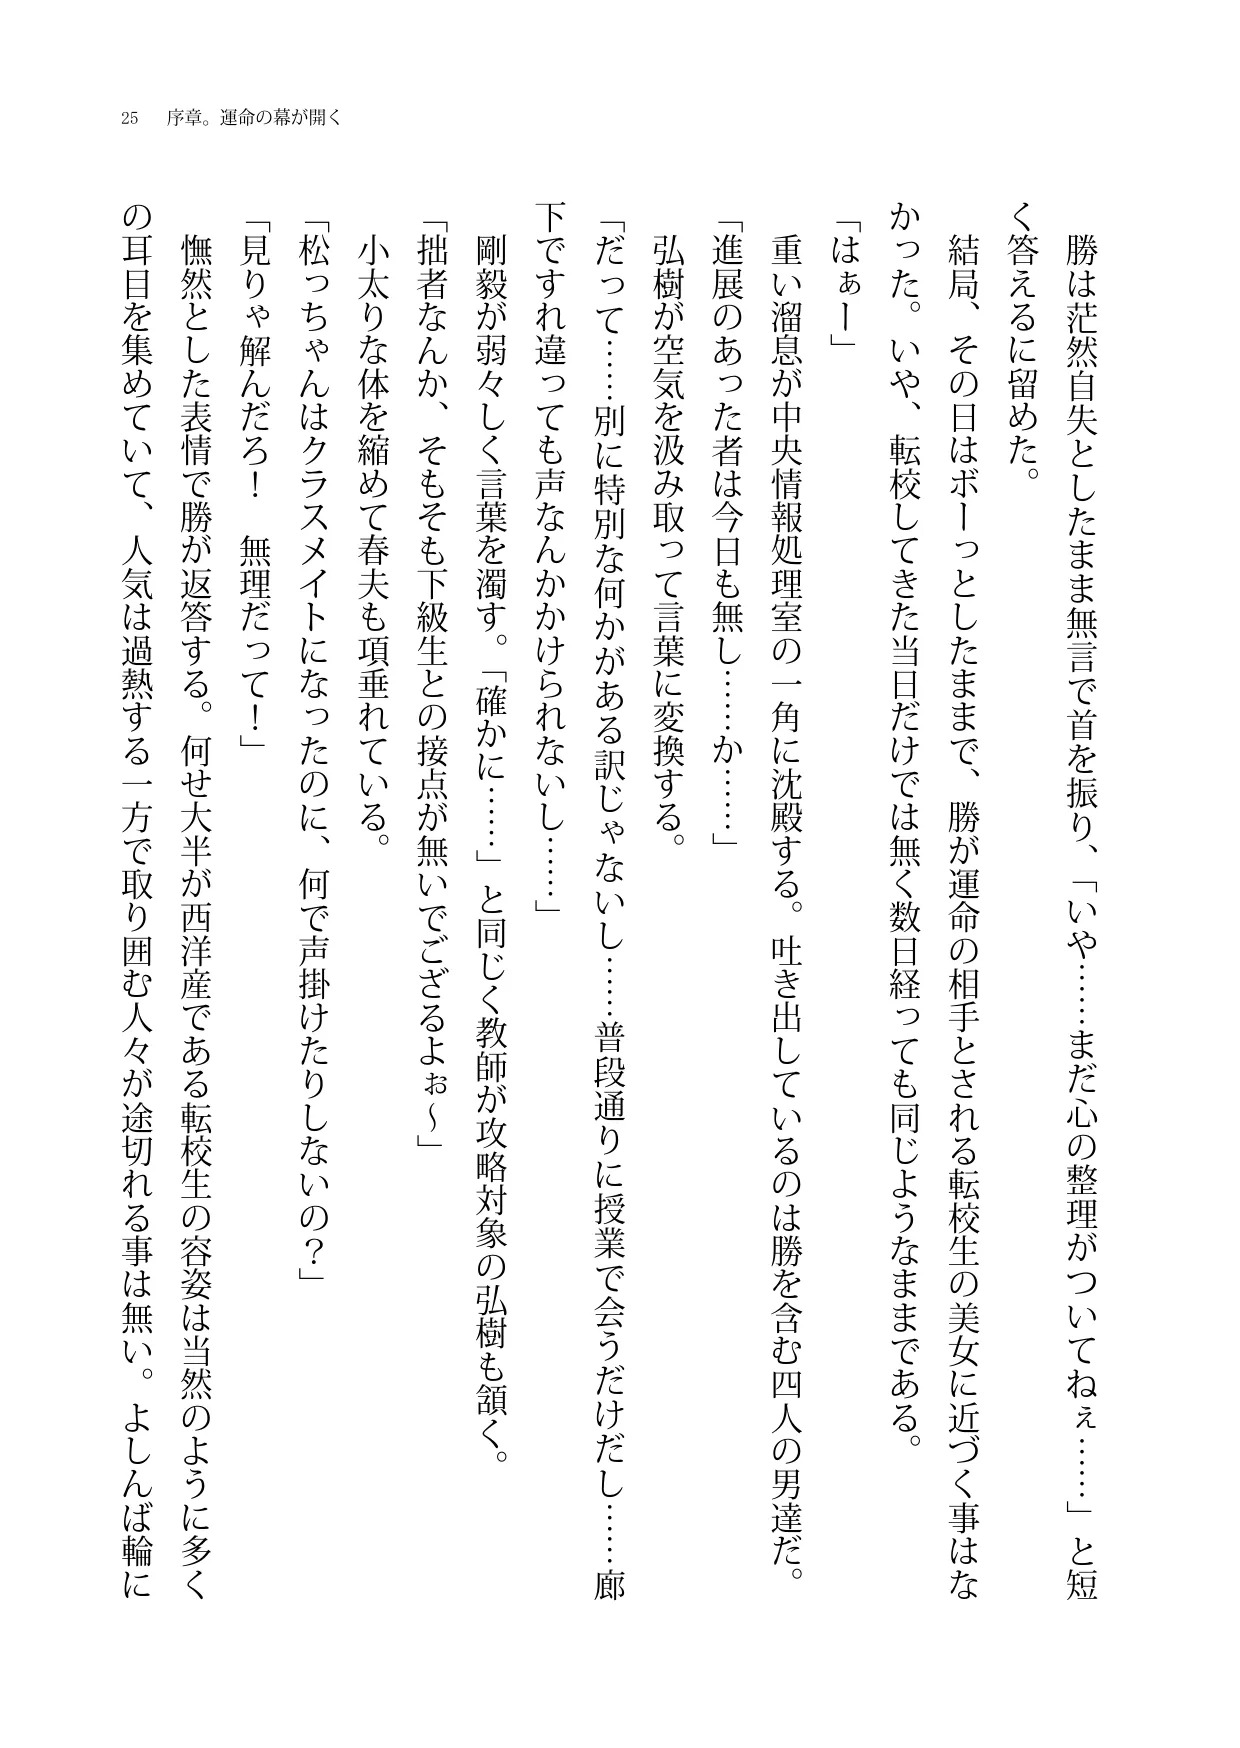 25 序章。運命の幕が開く
　勝は茫然自失としたまま無言で首を振り、「いや……まだ心の整理がついてねぇ……」と短
く答えるに留めた。
　結局、その日はボーっとしたままで、勝が運命の相手とされる転校生の美女に近づく事はな
かった。いや、転校してきた当日だけでは無く数日経っても同じようなままである。
「はぁー」
　重い溜息が中央情報処理室の一角に沈殿する。吐き出しているのは勝を含む四人の男達だ。
「進展のあった者は今日も無し……か……」
　弘樹が空気を汲み取って言葉に変換する。
「だって……別に特別な何かがある訳じゃないし……普段通りに授業で会うだけだし……廊
下ですれ違っても声なんかかけられないし……」
　剛毅が弱々しく言葉を濁す。「確かに……」と同じく教師が攻略対象の弘樹も頷く。
「拙者なんか、そもそも下級生との接点が無いでござるよぉ～」
　小太りな体を縮めて春夫も項垂れている。
「松っちゃんはクラスメイトになったのに、何で声掛けたりしないの？」
「見りゃ解んだろ！　無理だって！」
　憮然とした表情で勝が返答する。何せ大半が西洋産である転校生の容姿は当然のように多く
の耳目を集めていて、人気は過熱する一方で取り囲む人々が途切れる事は無い。よしんば輪に